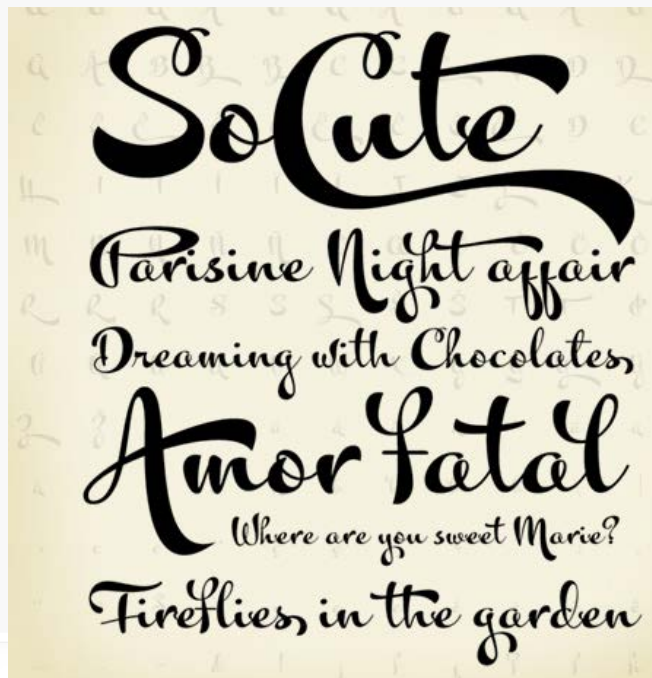 So Cute
Parisine Night affair
Dreaming with Chocolates
Amor fatal
Where are you sweet Marie?
Fireflies in the garden